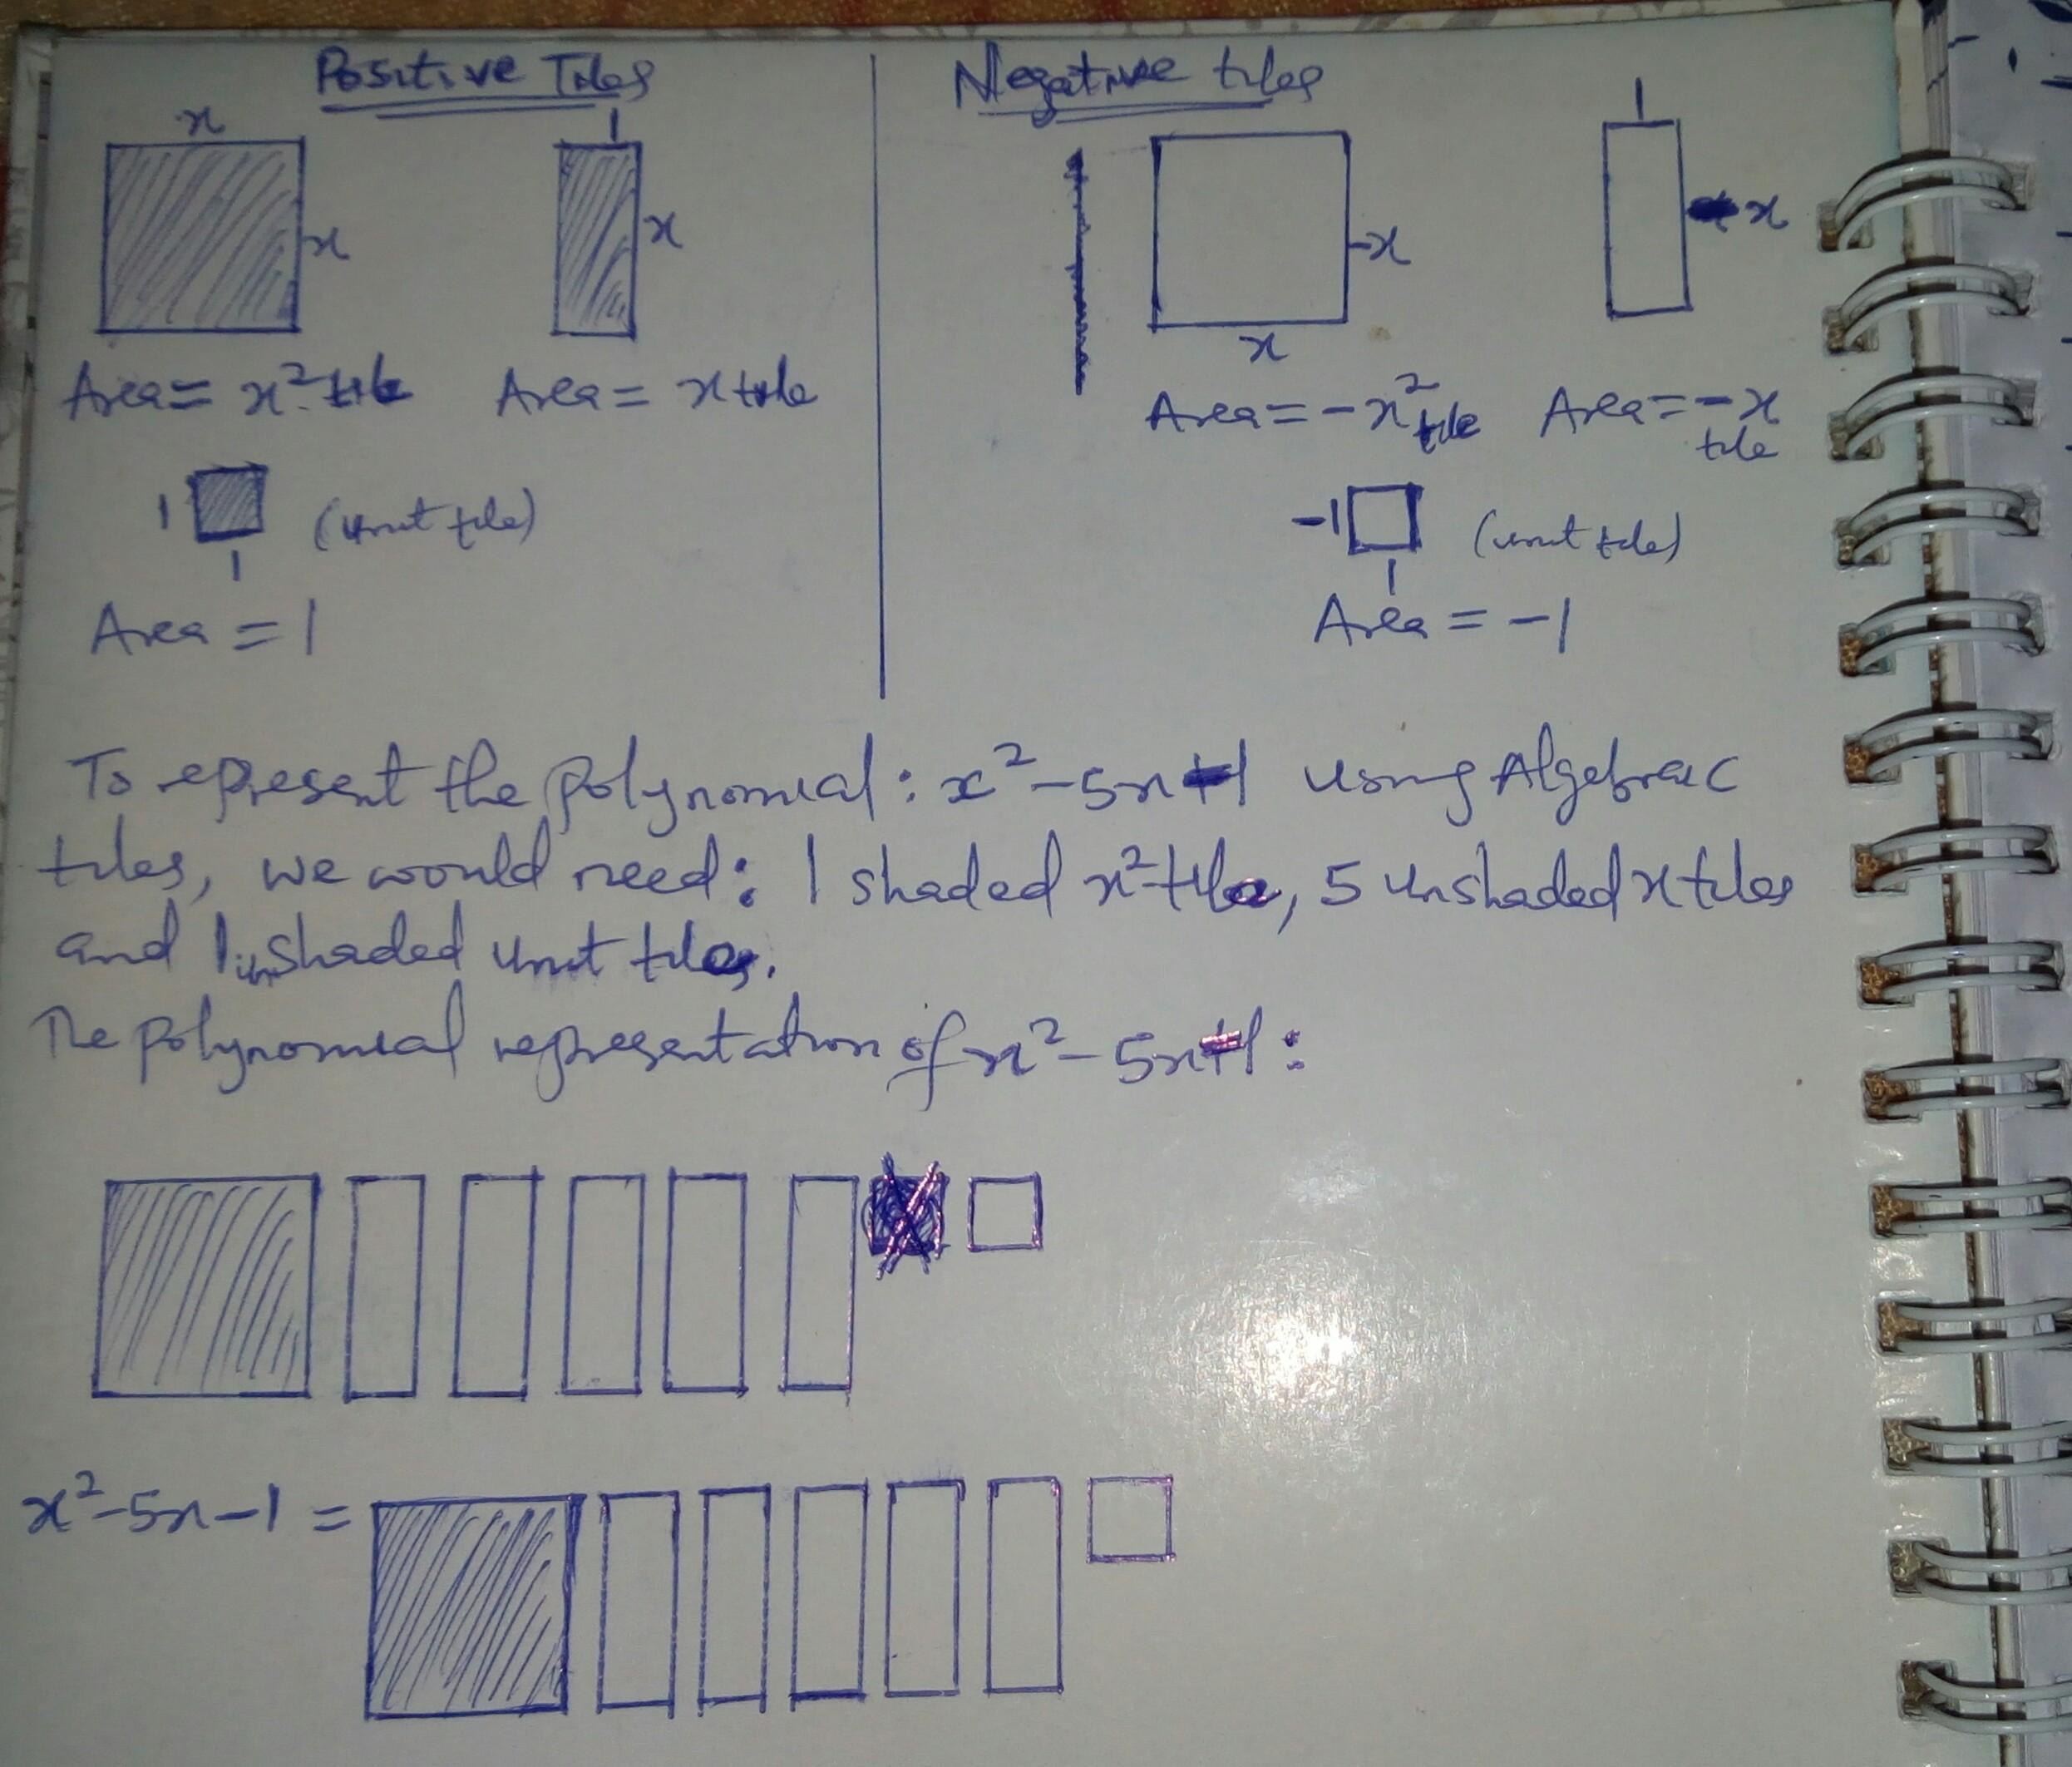 Positive Tiles
Negative tiles
x
1
x
x
1
-x
x
x
Area = x² tile
Area = x tile
Area = -x² tile
Area = -x
tile
1
(unit tile)
1
Area = 1
-1
(unit tile)
1
Area = -1
To represent the polynomial: x² - 5x - 1 using Algebraic
tiles, we would need: 1 shaded x² tile, 5 unshaded x tiles
and 1 unshaded unit tile.
The polynomial representation of x² - 5x - 1 :
x² - 5x - 1 =